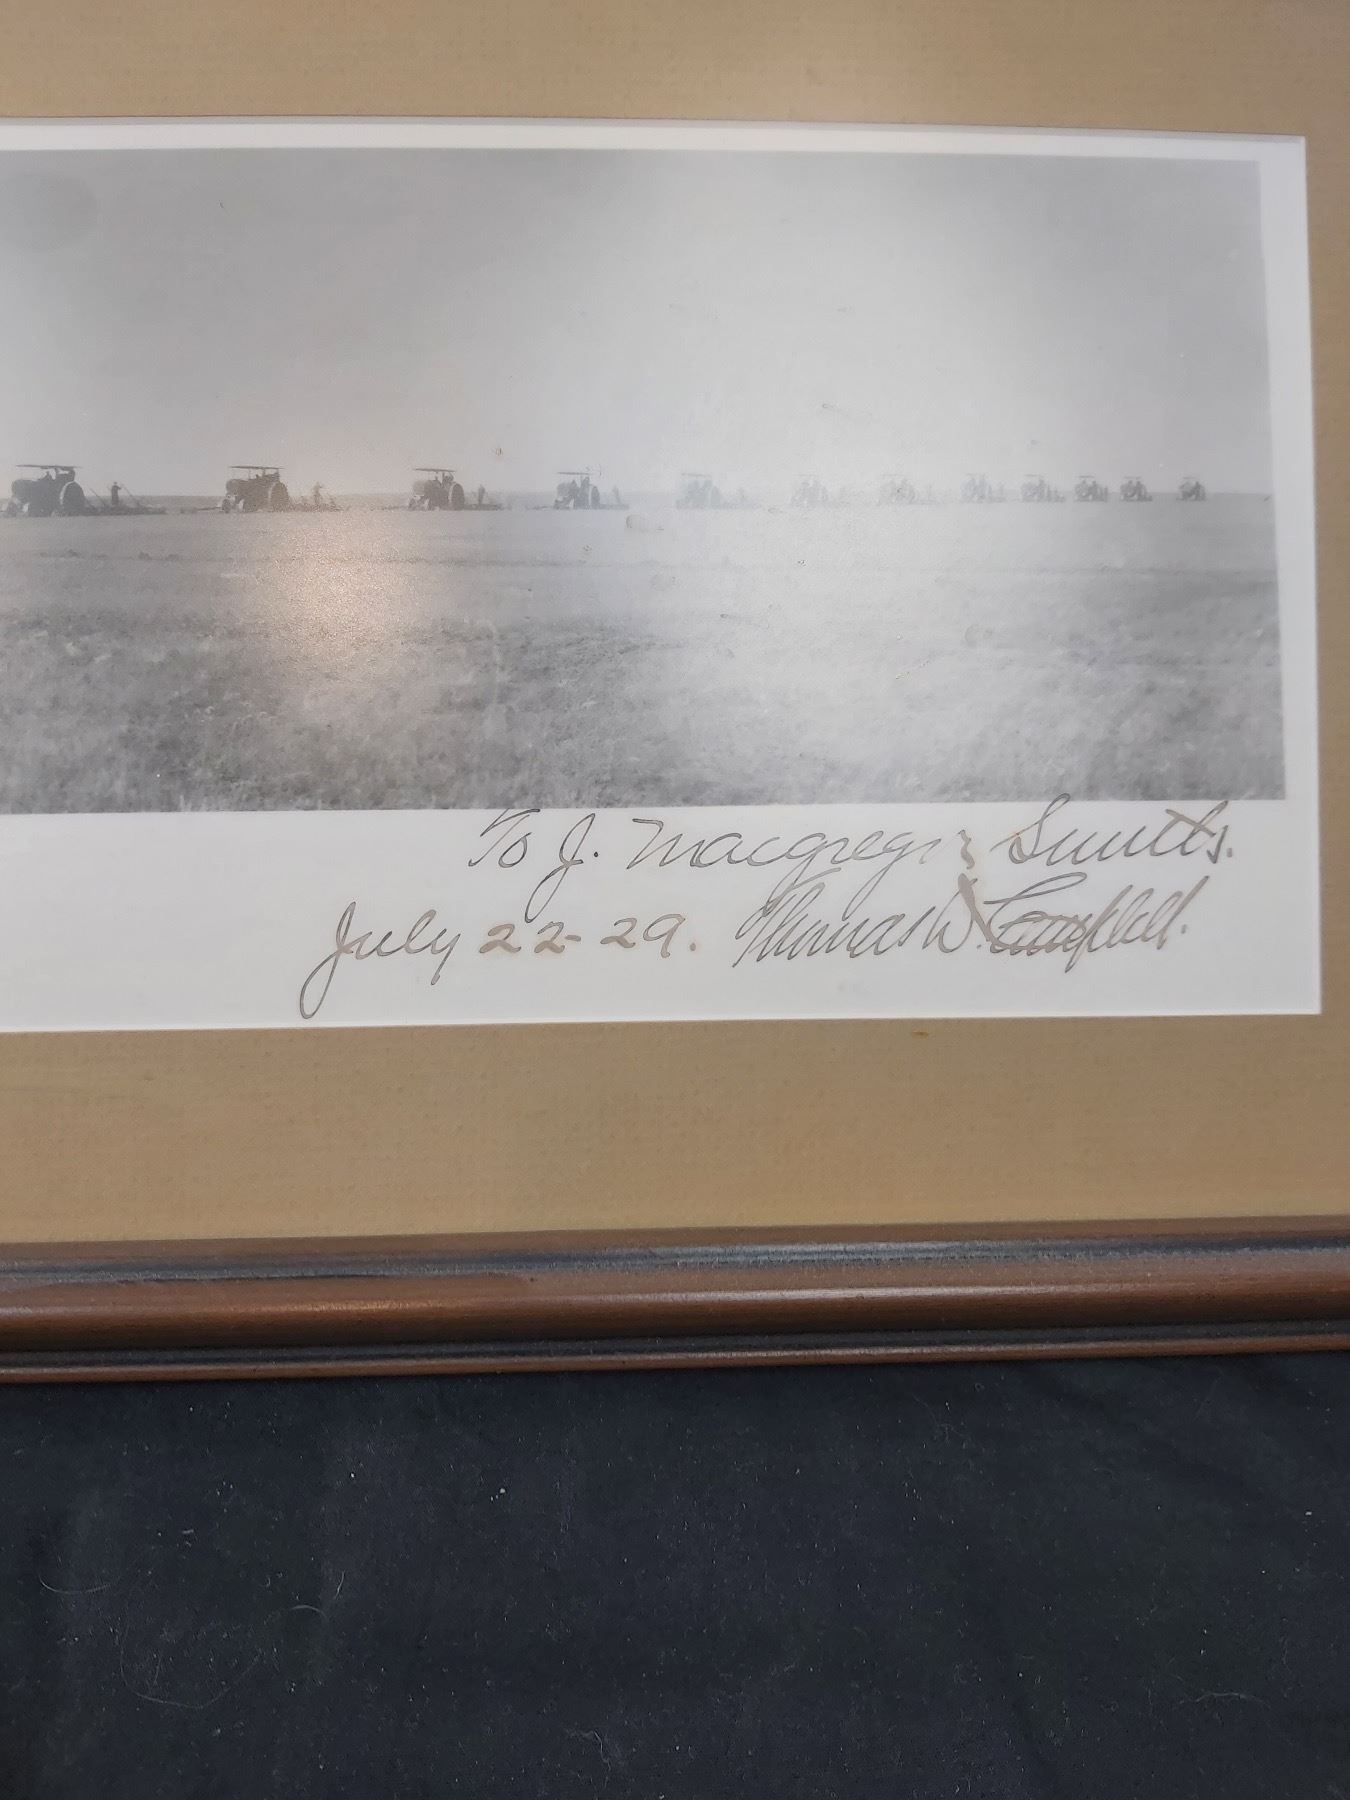 To J. Macgregor Smith.
July 22-29. Thomas D. Campbell.